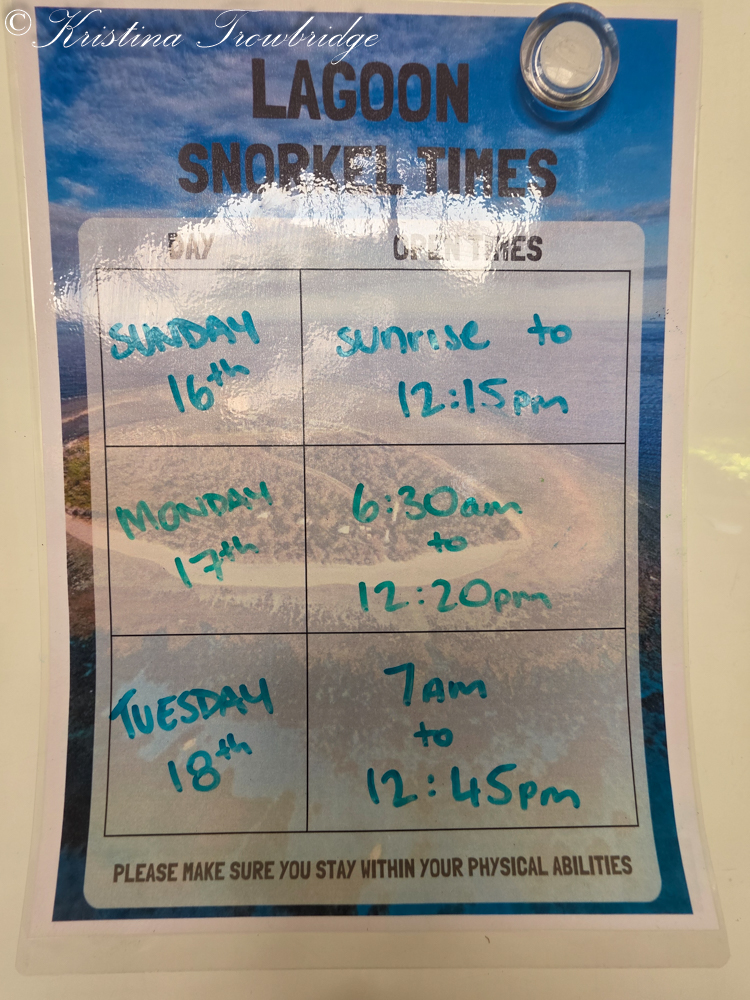 © Kristina Trowbridge
LAGOON
SNORKEL TIMES
DAY OPEN TIMES
SUNDAY 16th
sunrise to 12:15pm
MONDAY 17th
6:30am to 12:20pm
TUESDAY 18th
7AM to 12:45pm
PLEASE MAKE SURE YOU STAY WITHIN YOUR PHYSICAL ABILITIES